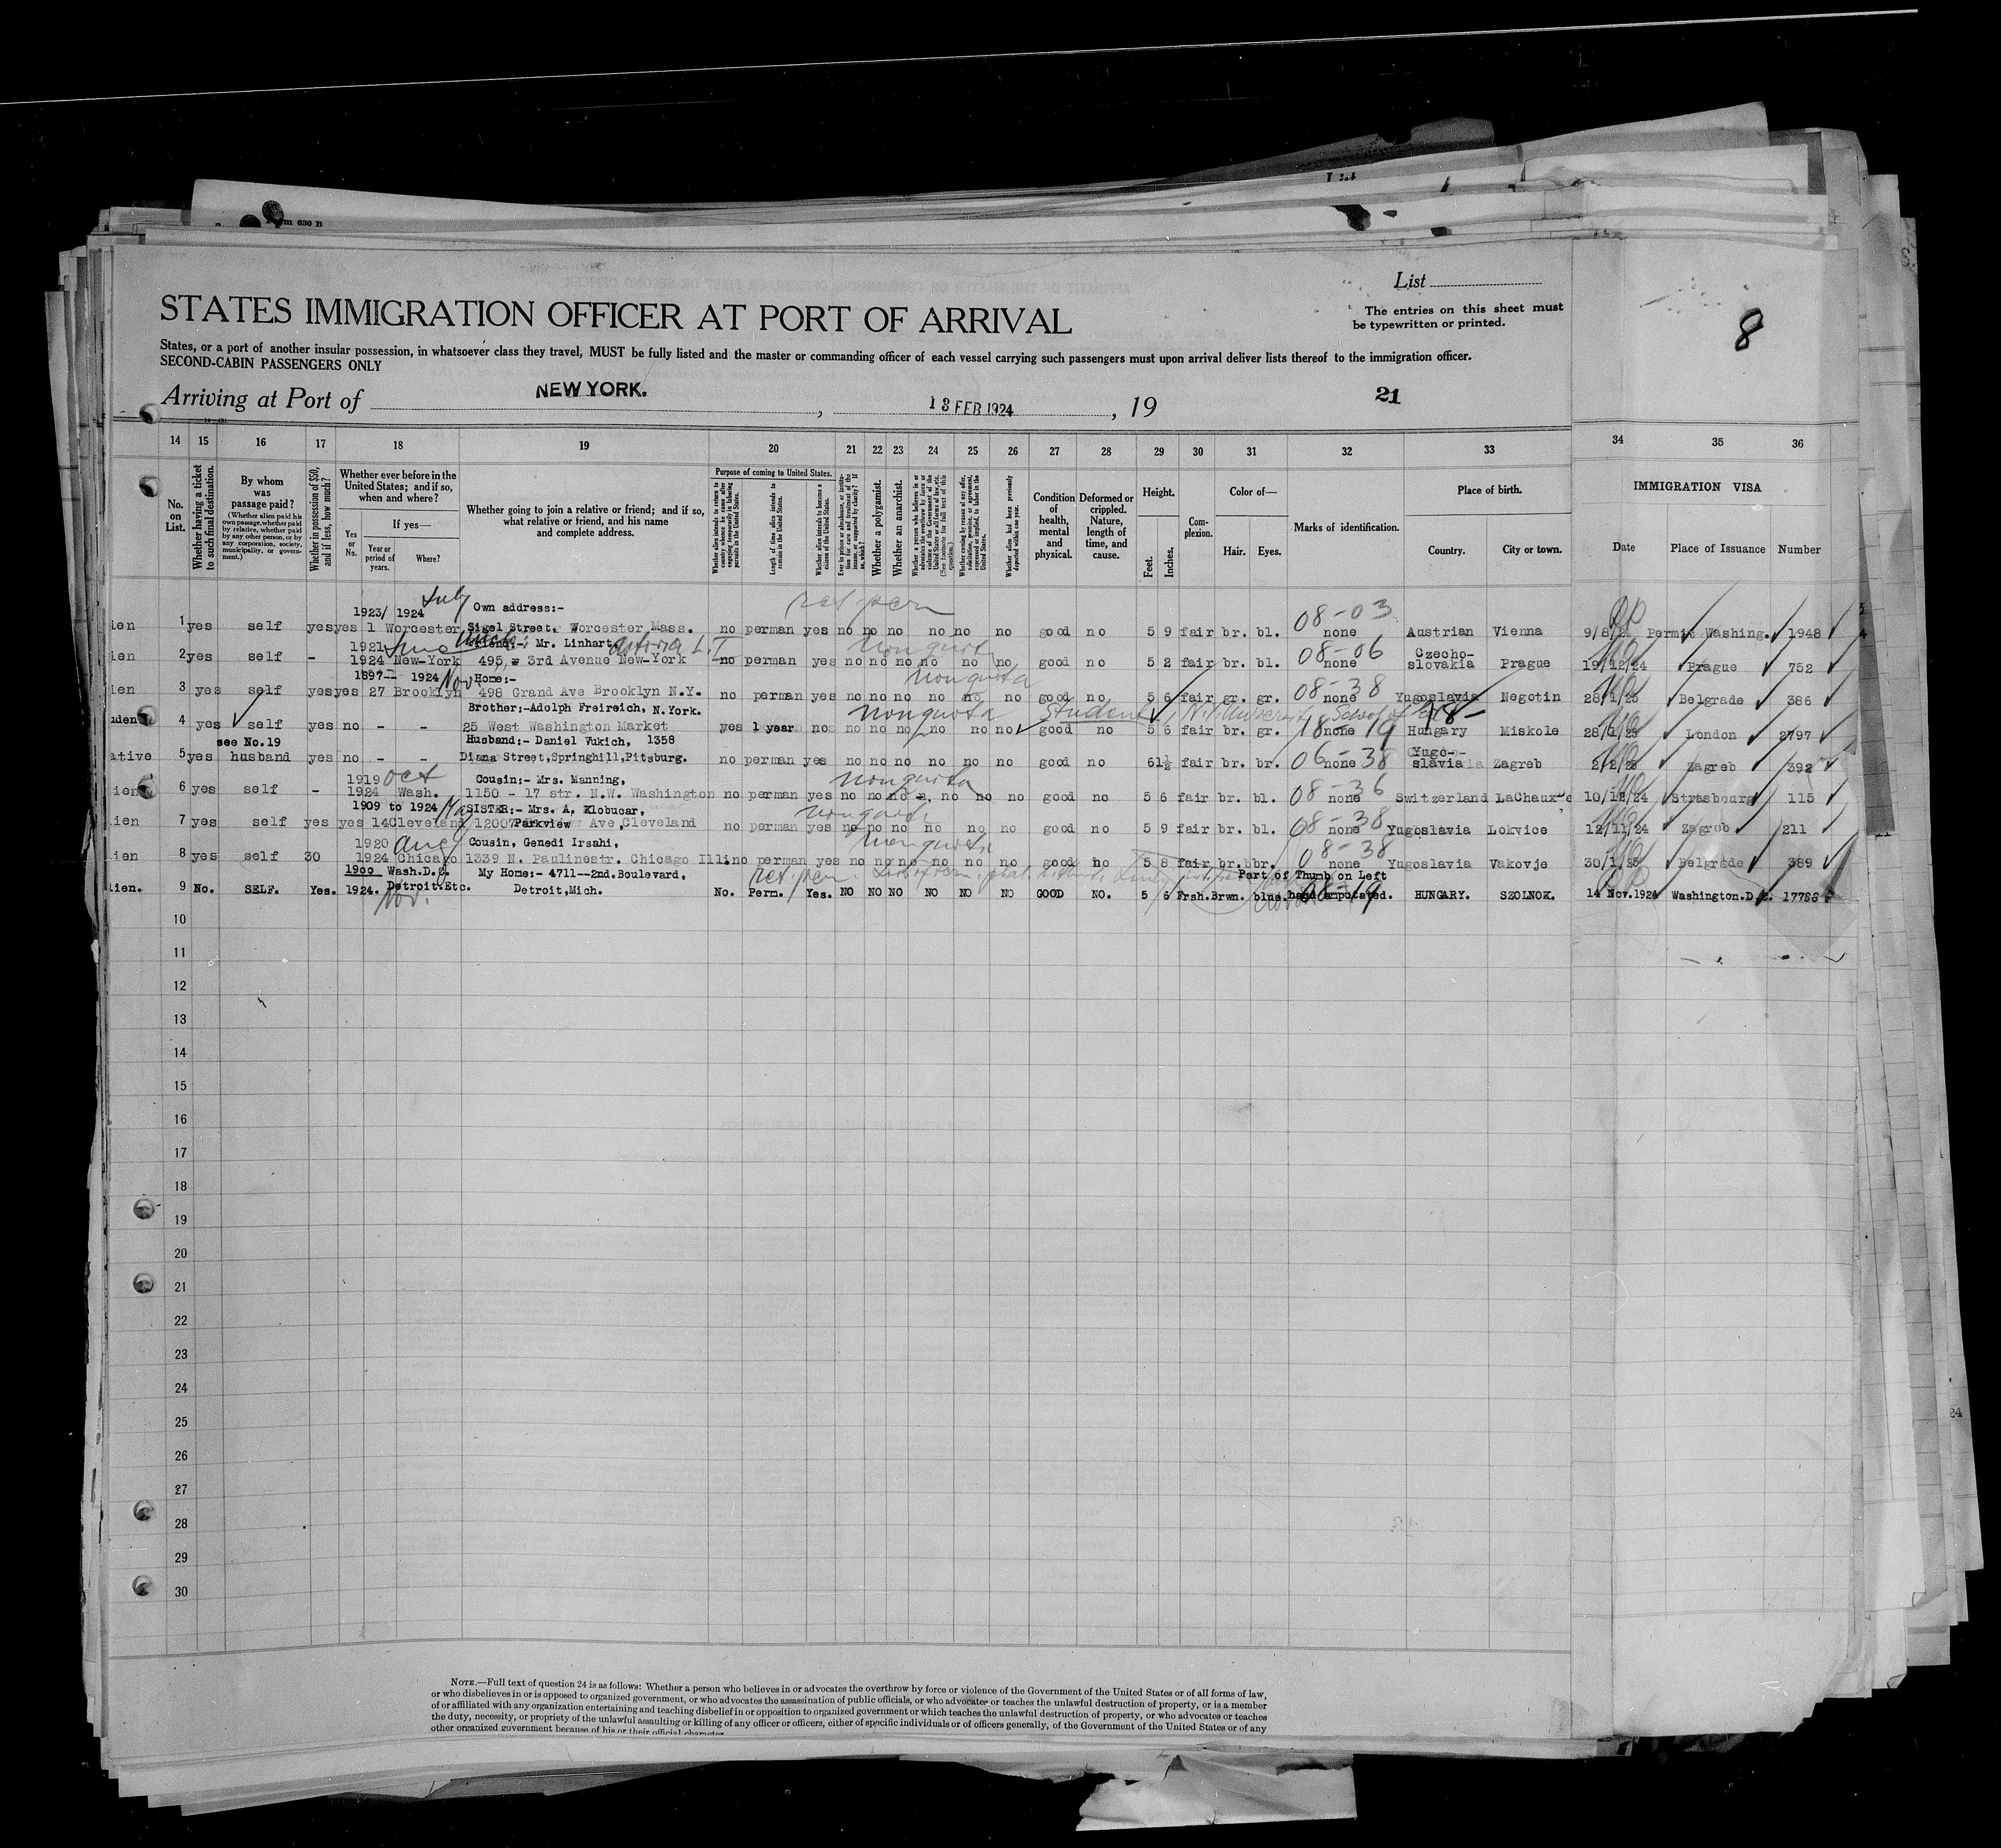 Form 630 B
List
STATES IMMIGRATION OFFICER AT PORT OF ARRIVAL
The entries on this sheet must
be typewritten or printed.
8
States, or a port of another insular possession, in whatsoever class they travel, MUST be fully listed and the master or commanding officer of each vessel carrying such passengers must upon arrival deliver lists thereof to the immigration officer.
SECOND-CABIN PASSENGERS ONLY
Arriving at Port of NEW YORK. , 13 FEB 1924 , 19 21
14 15 16 17 18 19 20 21 22 23 24 25 26 27 28 29 30 31 32 33 34 35 36
No. on List.
Whether having a ticket to such final destination.
By whom was passage paid?
(Whether alien paid his own passage, whether paid by relative, whether paid by any other person, or by any corporation, society, municipality, or government.)
Whether in possession of $50, and if less, how much?
Whether ever before in the United States; and if so, when and where?
Yes or No.
If yes—
Year or period of years.
Where?
Whether going to join a relative or friend; and if so, what relative or friend, and his name and complete address.
Purpose of coming to United States.
Whether alien intends to return to country whence he came after engaging temporarily in laboring pursuits in the United States.
Length of time alien intends to remain in the United States.
Whether alien intends to become a citizen of the United States.
Whether a polygamist.
Whether an anarchist.
Condition of health, mental and physical.
Deformed or crippled. Nature, length of time, and cause.
Height.
Feet. Inches.
Complexion.
Color of—
Hair. Eyes.
Marks of identification.
Place of birth.
Country. City or town.
IMMIGRATION VISA
Date Place of Issuance Number
July
1923/ 1924 Own address:- ret perm 08-03
ien 1 yes self yes yes 1 Worcester Sigel Street. Worcester Mass. no perman yes no no no no no no good no 5 9 fair br. bl. none Austrian Vienna Permit Washing. 1948
1921 Friend:- Mr. Linhart Astoria L.I nonquota 08-06 Czecho-
ien 2 yes self - 1924 New-York 495, 3rd Avenue New-York no perman yes no no no no no no good no 5 2 fair br. bl. none slovakia Prague 19/12/24 Prague 752
1897-- 1924 Nov Home:- nonquota 08-38
ien 3 yes self yes yes 27 Brooklyn 498 Grand Ave Brooklyn N.Y. no perman yes no no no no no no good no 5 6 fair gr. gr. none Yugoslavia Negotin 28/1/25 Belgrade 386
Brother:-Adolph Freireich, N.York. nonquota Student
uden 4 yes self yes no - - 25 West Washington Market yes 1 year no no no no no no no good no 5 6 fair br. gr. none Hungary Miskole 28/1/25 London 2797
see No.19 Husband:- Daniel Vukich, 1358 Yugo-
ative 5 yes husband yes no - - Diana Street,Springhill,Pitsburg. no perman yes no no no no no no good no 6 1½ fair br. br. 06-38 none slavia Zagreb 2/2/25 Zagreb 392
1919 Oct Cousin:- Mrs. Manning, nonquota 08-36
ien 6 yes self - 1924 Wash. 1150 - 17 str. N.W. Washington no perman yes no no no no no no good no 5 6 fair br. bl. none Switzerland LaChaux 10/12/24 Strasbourg 115
1909 to 1924 May SISTER:- Mrs. A, Klobucar, nonquota 08-38
ien 7 yes self yes yes 14 Cleveland 12007 Parkview Ave, Cleveland no perman yes no no no no no no good no 5 9 fair br. bl. none Yugoslavia Lokvice 12/11/24 Zagreb 211
1920 Aug Cousin, Genedi Irsahi, nonquota 08-38
ien 8 yes self 30 1924 Chicago 1339 N. Paulinestr. Chicago Ill. no perman yes no no no no no no good no 5 8 fair br. br. none Yugoslavia Vakovje 30/1/25 Belgrade 389
1900 Wash.D.C. My Home:- 4711--2nd.Boulevard, ret. perm. Part of Thumb on Left
lien. 9 No. SELF. Yes. 1924. Detroit.Etc. Detroit,Mich. No. Perm. Yes. NO NO NO NO NO NO GOOD NO. 5 6 Frsh. Brwn. blue. hand amputated. HUNGARY. SZOLNOK. 14 Nov.1924 Washington.D.C. 17786
Nov.
10
11
12
13
14
15
16
17
18
19
20
21
22
23
24
25
26
27
28
29
30
NOTE.—Full text of question 24 is as follows: Whether a person who believes in or advocates the overthrow by force or violence of the Government of the United States or of all forms of law,
or who disbelieves in or is opposed to organized government, or who advocates the assassination of public officials, or who advocates or teaches the unlawful destruction of property, or is a member
of or affiliated with any organization entertaining and teaching disbelief in or opposition to organized government or which teaches the unlawful destruction of property, or who advocates or teaches
the duty, necessity, or propriety of the unlawful assaulting or killing of any officer or officers, either of specific individuals or of officers generally, of the Government of the United States or of any
other organized government because of his or their official character